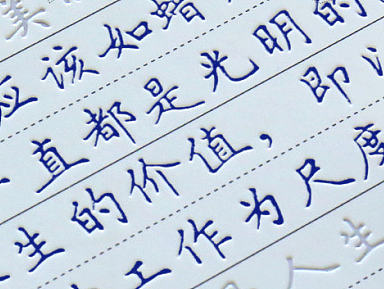 美
应该如蜡
直都是光明的
生的价值，即
工作为尺度
人生